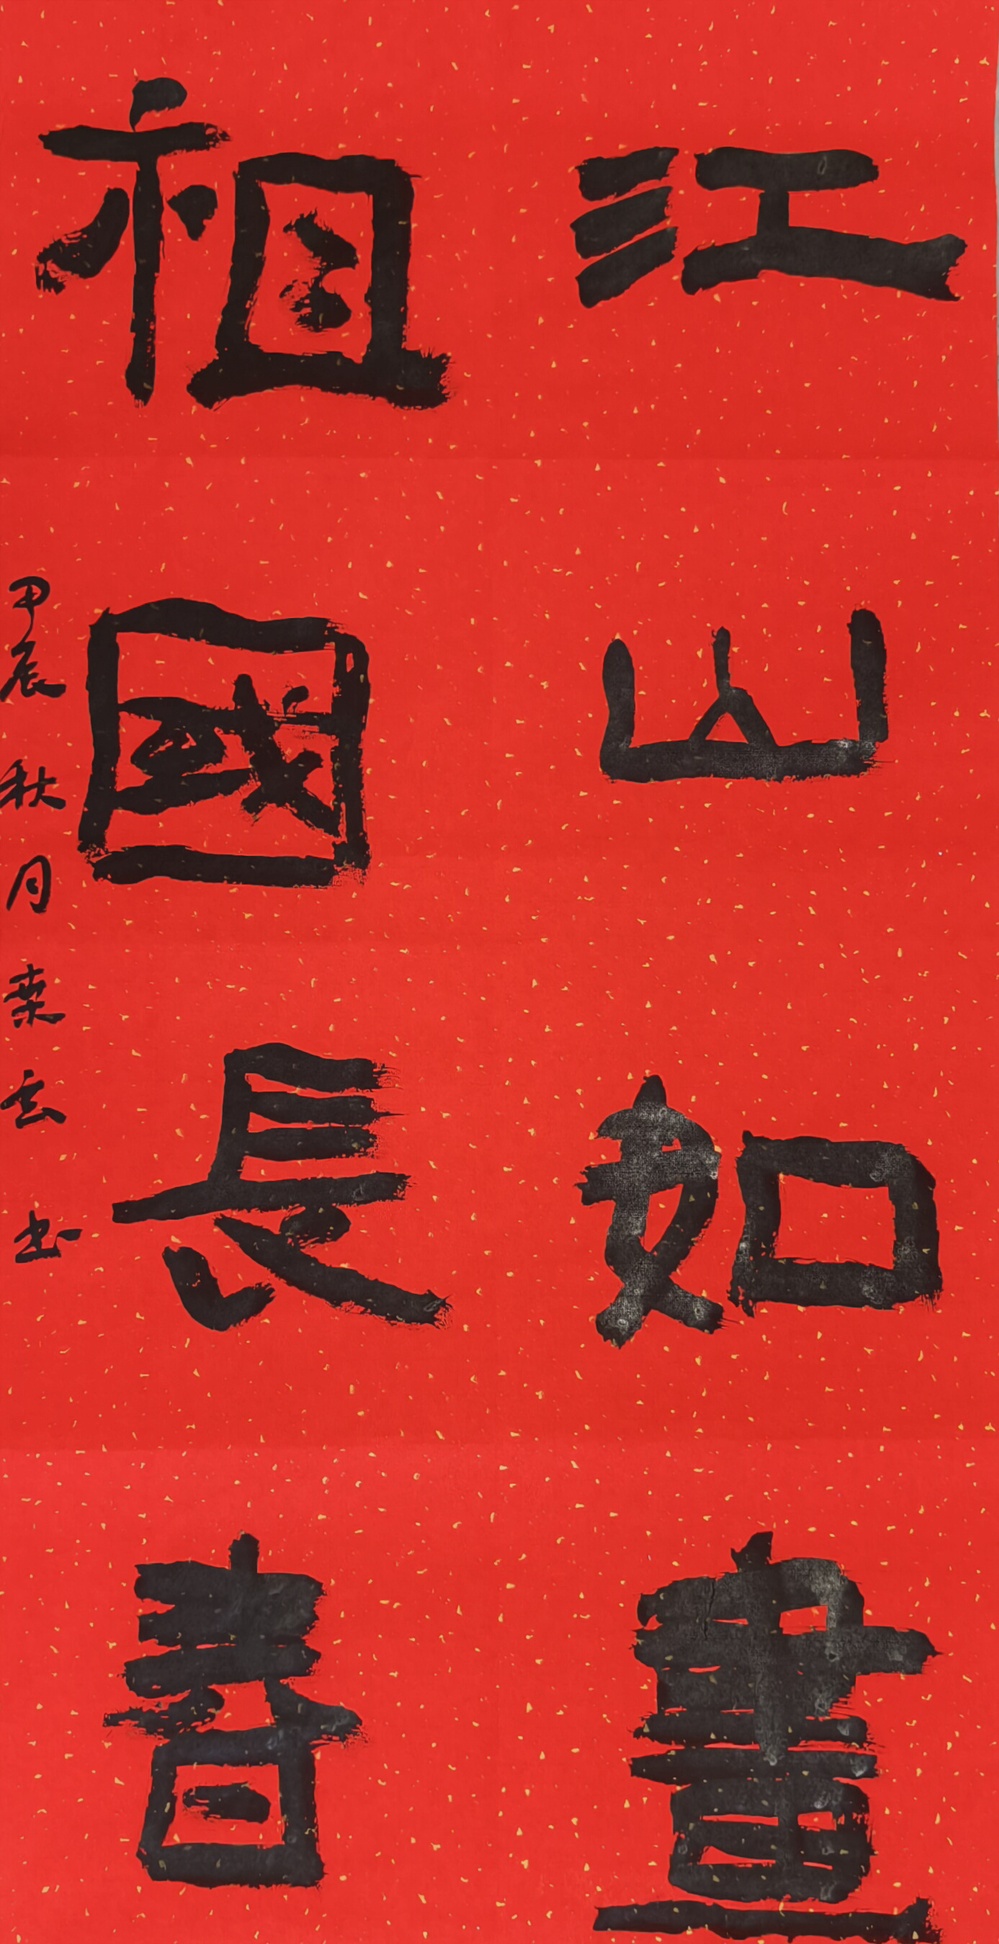 江山如畫
祖國長春
甲辰秋月栾玄书